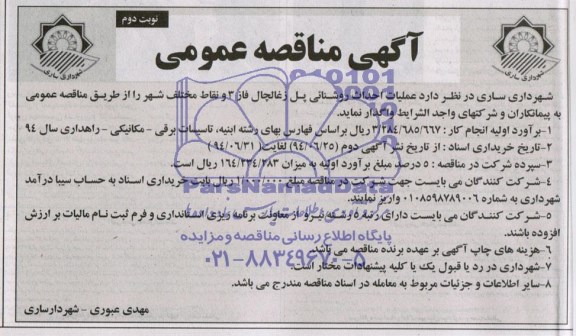 نوبت دوم
آگهی مناقصه عمومی
شهرداری ساری
شهرداری ساری
شهرداری ساری در نظر دارد عملیات احداث روشنائی پل زغالچال فاز ۳ و نقاط مختلف شهر را از طریق مناقصه عمومی
به پیمانکاران و شرکتهای واجد الشرایط واگذار نماید.
۱-برآورد اولیه انجام کار : ۳/۲۸۴/۶۸۵/۶۶۷ ریال براساس فهارس بهای رشته ابنیه، تاسیسات برقی - مکانیکی - راهداری سال ۹۴
۲-تاریخ خریداری اسناد : از تاریخ نشر آگهی دوم (۹۴/۰۶/۲۵) لغایت (۹۴/۰۶/۳۱)
۳-سپرده شرکت در مناقصه : ۵ درصد مبلغ برآورد اولیه به میزان ۱۶۴/۲۳۴/۲۸۳ ریال است.
۴-شرکت کنندگان می بایست جهت شرکت در مناقصه مبلغ ریال بابت خریداری اسناد به حساب سیبا درآمد
شهرداری به شماره ۰۱۰۸۵۹۸۷۸۹۰۰۶ واریز نمایند.
۵-شرکت کنندگان می بایست دارای رتبه ۵ رشته نیرو از معاونت برنامه ریزی استانداری و فرم ثبت نام مالیات بر ارزش
افزوده باشند.
۶-هزینه های چاپ آگهی بر عهده برنده مناقصه می باشد.
۷-شهرداری در رد یا قبول یک یا کلیه پیشنهادات مختار است.
۸-سایر اطلاعات و جزئیات مربوط به معامله در اسناد مناقصه مندرج می باشد.
مهدی عبوری - شهردار ساری
ParsNamadData
پایگاه اطلاع رسانی مناقصه و مزایده
۰۲۱-۸۸۳۴۹۶۷۰-۵